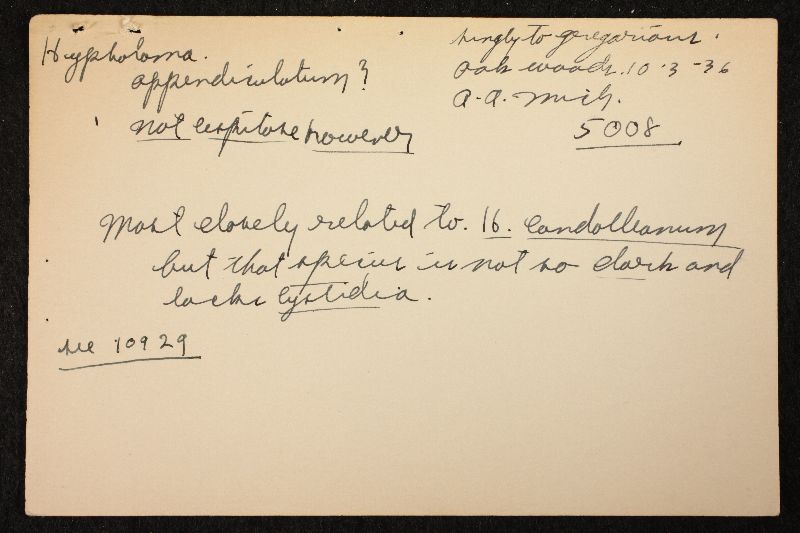 Hypholoma.
appendiculatum?
not cespitose however
singly to gregarious.
oak woods. 10-3-36
a.a. mich.
5008
most closely related to. H. candolleanum
but that species is not so dark and
lacks cystidia.
see 10929